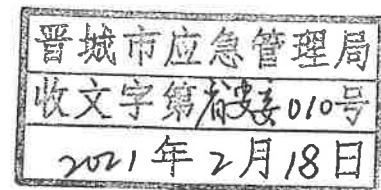 晋城市应急管理局
收文字第省安委010号
2021年2月18日